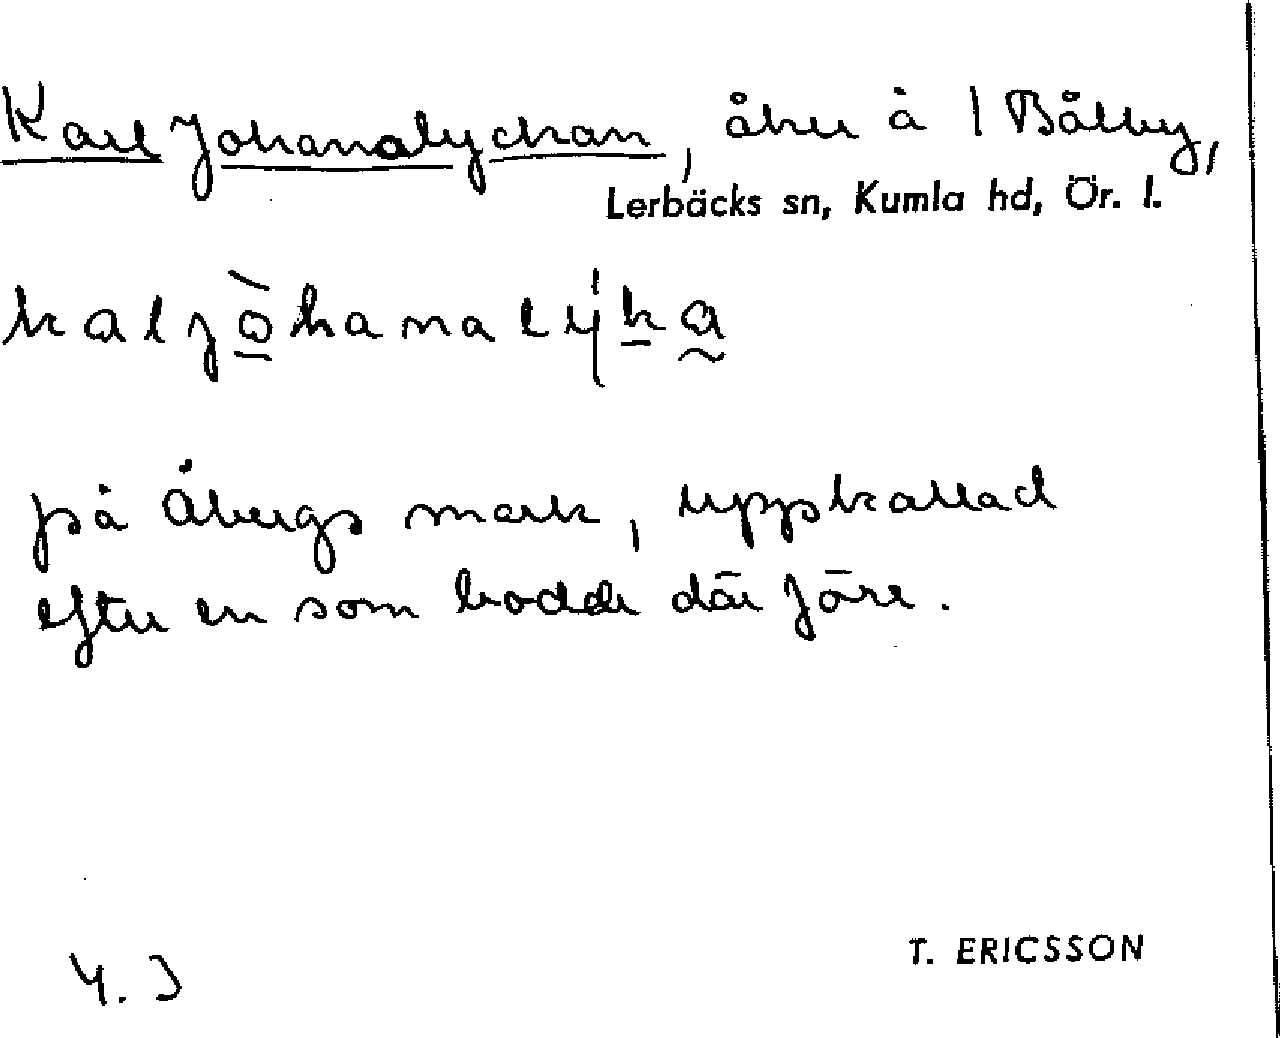 Karl Johanalyckan, åker å 1 Bålby,
Lerbäcks sn, Kumla hd, Ör. l.
kaljòhanalýka
på Åbergs mark, uppkallad
efter en som bodde där förr.
4. J
T. ERICSSON